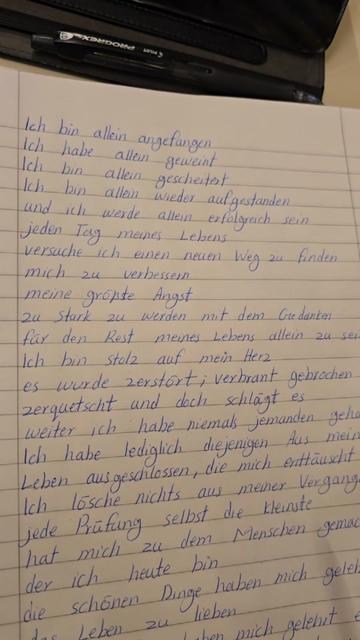 PROGREX
PILOT
Ich bin allein angefangen
Ich habe allein geweint
Ich bin allein gescheitert
Ich bin allein wieder aufgestanden
und ich werde allein erfolgreich sein
jeden Tag meines Lebens
versuche ich einen neuen Weg zu finden
mich zu verbessern
meine größte Angst
zu Stark zu werden mit dem Gedanken
für den Rest meines Lebens allein zu sei
Ich bin stolz auf mein Herz
es wurde zerstört, verbrant gebrochen
zerquetscht und doch schlägt es
weiter ich habe niemals jemanden geha
Ich habe lediglich diejenigen Aus mein
Leben ausgeschlossen, die mich enttäuscht
Ich lösche nichts aus meiner Vergang
jede Prüfung selbst die kleinste
hat mich zu dem Menschen gemac
der ich heute bin
die schönen Dinge haben mich geleh
das Leben zu lieben
haben mich gelehrt